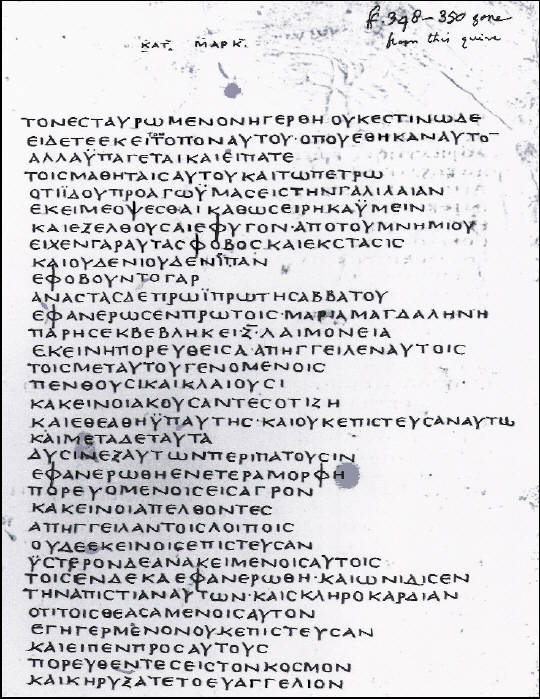 f. 348–350 gone
from this quire
ΚΑΤ. ΜΑΡΚ.
ΤΟΝΕϹΤΑΥΡΩΜΕΝΟΝΗΓΕΡΘΗ ΟΥΚΕϹΤΙΝΩΔΕ
ΕΙΔΕΤΕΕΚΕΙΤΟΠΟΝΑΥΤΟΥ·ΟΠΟΥΕΘΗΚΑΝΑΥΤΟ¯
ΑΛΛΑΫΠΑΓΕΤΑΙΚΑΙΕΙΠΑΤΕ
ΤΟΙϹΜΑΘΗΤΑΙϹΑΥΤΟΥΚΑΙΤΩΠΕΤΡΩ
ΟΤΙΪΔΟΥΠΡΟΑΓΩΫΜΑϹΕΙϹΤΗΝΓΑΛΙΛΑΙΑΝ
ΕΚΕΙΜΕΟΨΕϹΘΑΙΚΑΘΩϹΕΙΡΗΚΑΫΜΕΙΝ
ΚΑΙΕΞΕΛΘΟΥϹΑΙΕΦΥΓΟΝ·ΑΠΟΤΟΥΜΝΗΜΙΟΥ
ΕΙΧΕΝΓΑΡΑΥΤΑϹΦΟΒΟϹ·ΚΑΙΕΚϹΤΑϹΙϹ
ΚΑΙΟΥΔΕΝΙΟΥΔΕΝΙΠΑΝ
ΕΦΟΒΟΥΝΤΟΓΑΡ
ΑΝΑϹΤΑϹΔΕΠΡΩΪΠΡΩΤΗϹΑΒΒΑΤΟΥ
ΕΦΑΝΕΡΩϹΕΝΠΡΩΤΟΙϹ·ΜΑΡΙΑΜΑΓΔΑΛΗΝΗ
ΠΑΡΗϹΕΚΒΕΒΛΗΚΕΙΖ̅·ΔΑΙΜΟΝΕΙΑ
ΕΚΕΙΝΗΠΟΡΕΥΘΕΙϹΑ·ΑΠΗΓΓΕΙΛΕΝΑΥΤΟΙϹ
ΤΟΙϹΜΕΤΑΥΤΟΥΓΕΝΟΜΕΝΟΙϹ
ΠΕΝΘΟΥϹΙΚΑΙΚΛΑΙΟΥϹΙ
ΚΑΚΕΙΝΟΙΑΚΟΥϹΑΝΤΕϹΟΤΙΖΗ
ΚΑΙΕΘΕΑΘΗΫΠΑΥΤΗϹ·ΚΑΙΟΥΚΕΠΙϹΤΕΥϹΑΝΑΥΤΩ
ΚΑΙΜΕΤΑΔΕΤΑΥΤΑ
ΔΥϹΙΝΕΞΑΥΤΩΝΠΕΡΙΠΑΤΟΥϹΙΝ
ΕΦΑΝΕΡΩΘΗΕΝΕΤΕΡΑΜΟΡΦΗ
ΠΟΡΕΥΟΜΕΝΟΙϹΕΙϹΑΓΡΟΝ
ΚΑΚΕΙΝΟΙΑΠΕΛΘΟΝΤΕϹ
ΑΠΗΓΓΕΙΛΑΝΤΟΙϹΛΟΙΠΟΙϹ
ΟΥΔΕΕΚΕΙΝΟΙϹΕΠΙϹΤΕΥϹΑΝ
ΫϹΤΕΡΟΝΔΕΑΝΑΚΕΙΜΕΝΟΙϹΑΥΤΟΙϹ
ΤΟΙϹΕΝΔΕΚΑΕΦΑΝΕΡΩΘΗ·ΚΑΙΩΝΙΔΙϹΕΝ
ΤΗΝΑΠΙϹΤΙΑΝΑΥΤΩΝ·ΚΑΙϹΚΛΗΡΟΚΑΡΔΙΑΝ
ΟΤΙΤΟΙϹΘΕΑϹΑΜΕΝΟΙϹΑΥΤΟΝ
ΕΓΗΓΕΡΜΕΝΟΝΟΥΚΕΠΙϹΤΕΥϹΑΝ
ΚΑΙΕΙΠΕΝΠΡΟϹΑΥΤΟΥϹ
ΠΟΡΕΥΘΕΝΤΕϹΕΙϹΤΟΝΚΟϹΜΟΝ
ΚΑΙΚΗΡΥΞΑΤΕΤΟΕΥΑΓΓΕΛΙΟΝ